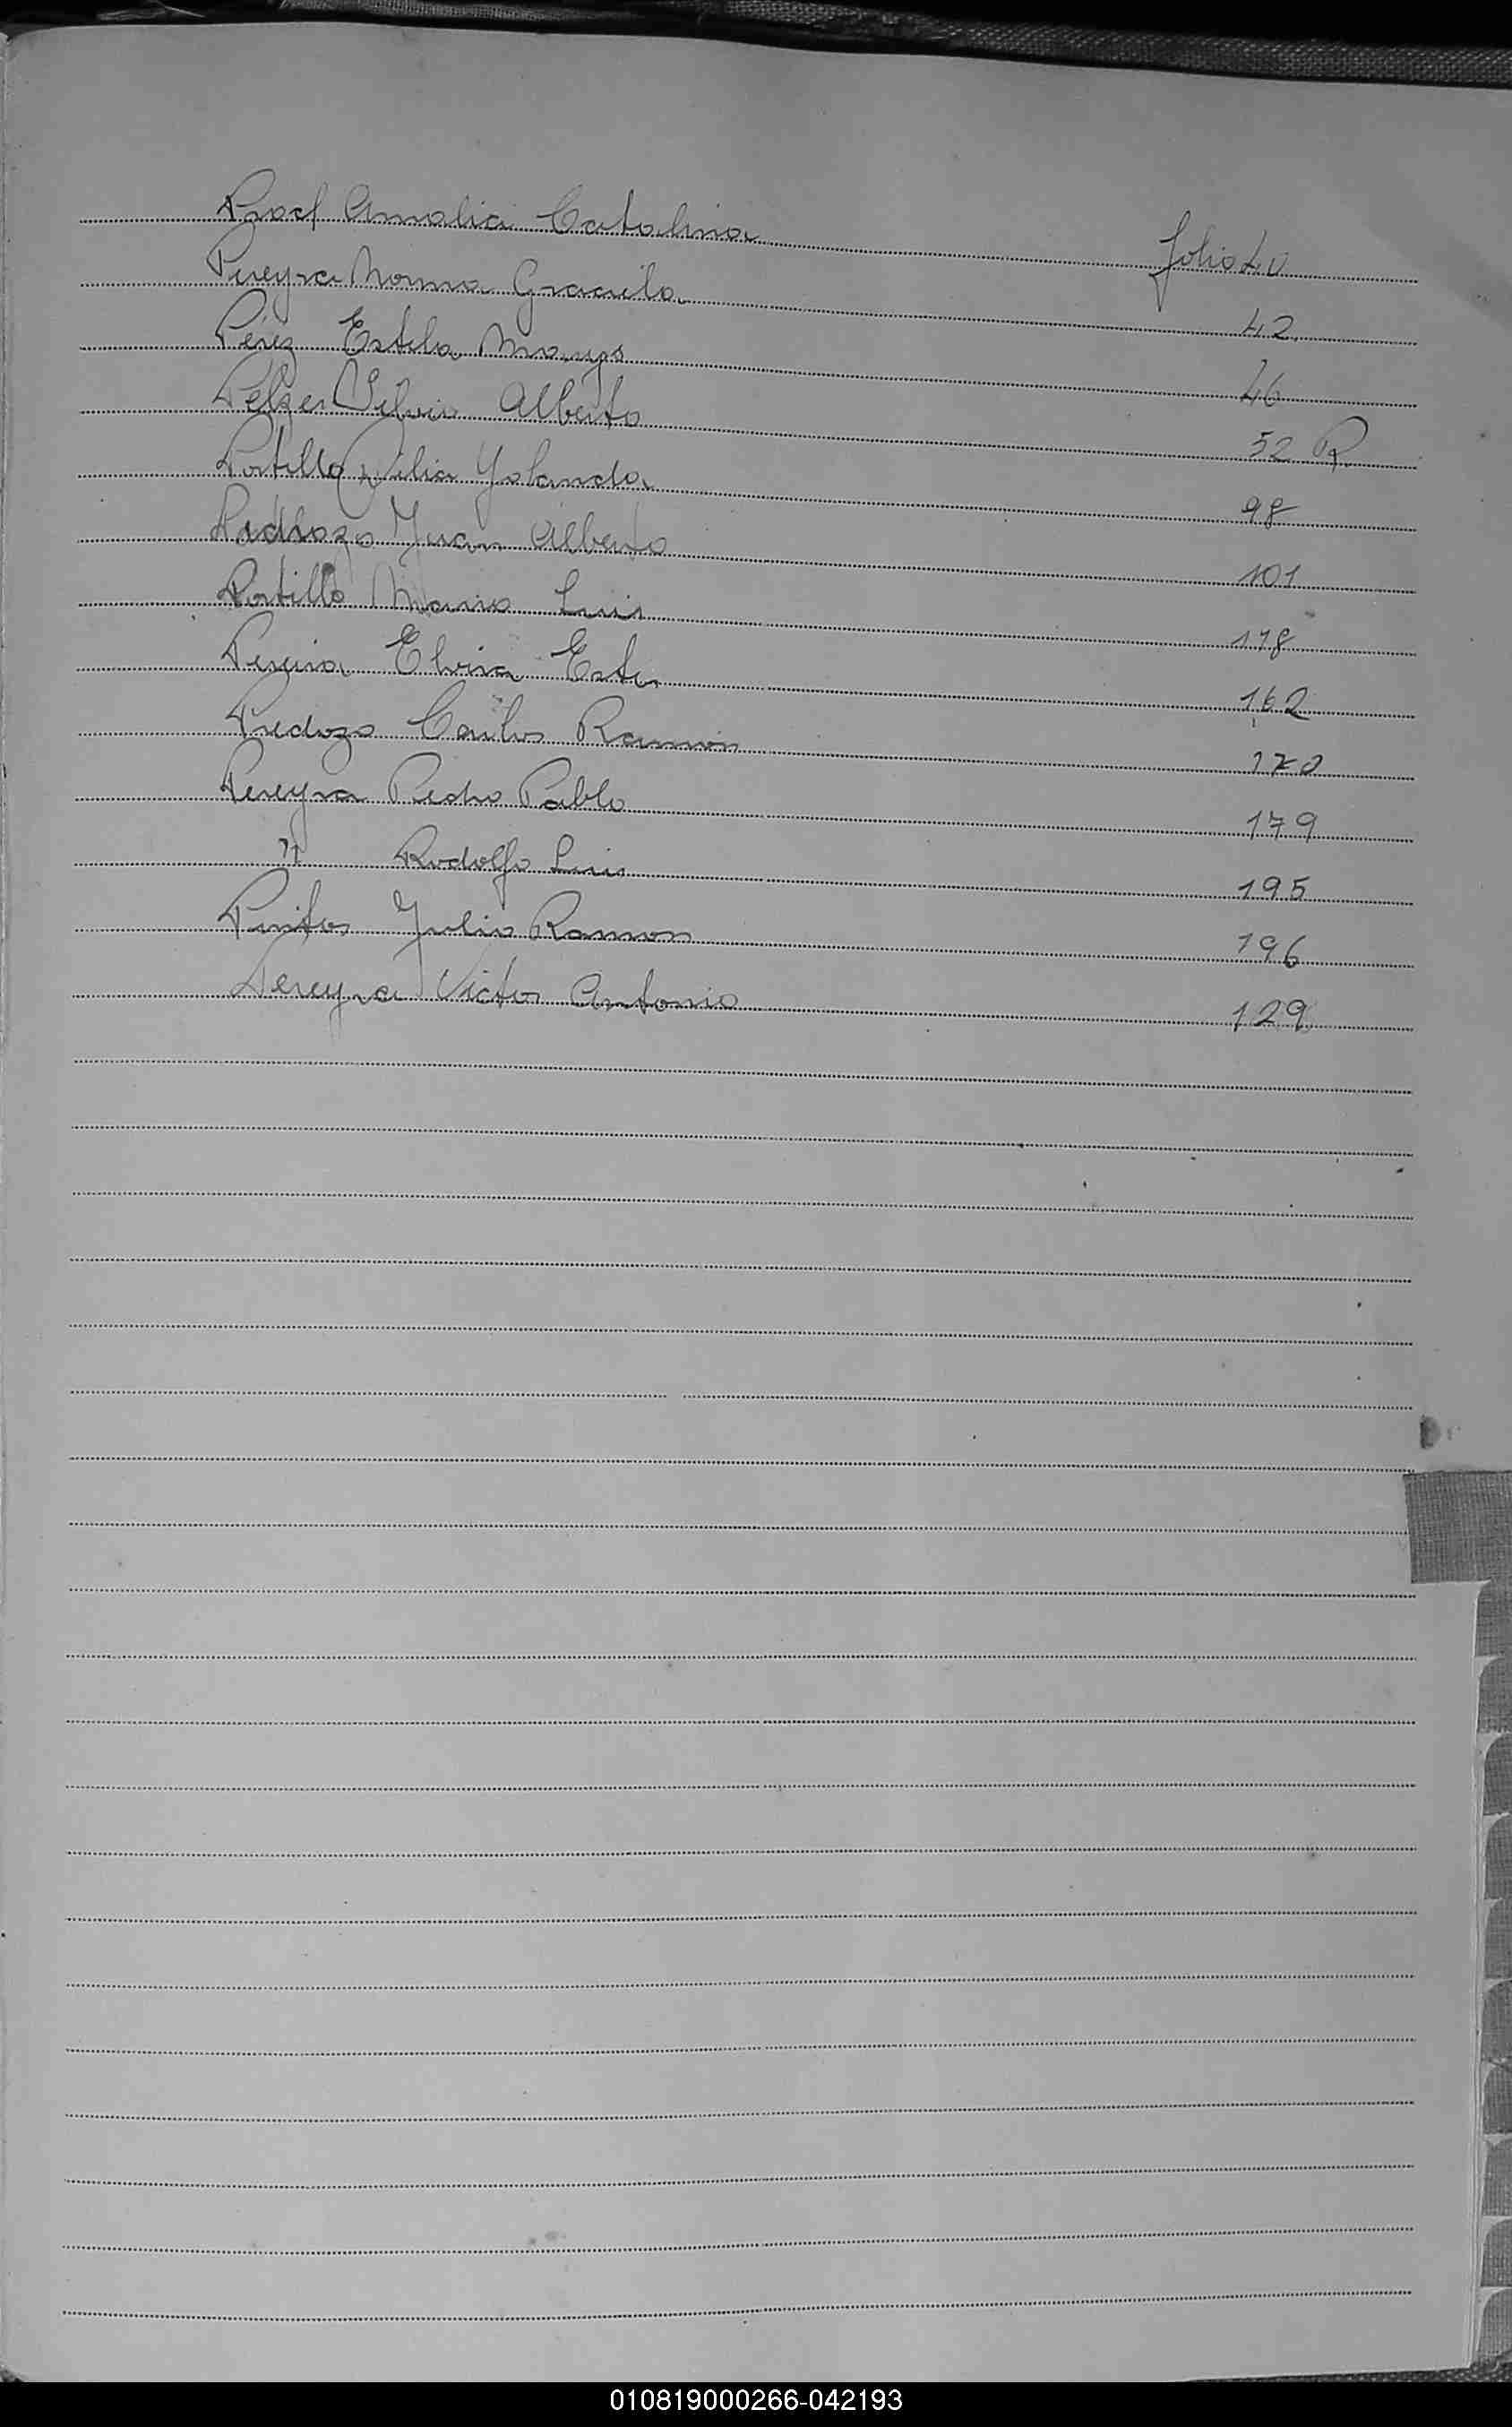 Amalia Catalina folio 40
Pereyra Norma Graciela 42
Pérez Estela 46
Pelzer Silvio Alberto 52 R
Portillo Yolanda 98
Juan Alberto 101
Portillo Mario Luis 118
Pereira Elvira Ester 162
Predozo Carlos Ramón 170
Pereyra Pedro Pablo 179
" Rodolfo Luis 195
Pintos Julio Ramon 196
Pereyra Victor Antonio 129
010819000266-042193